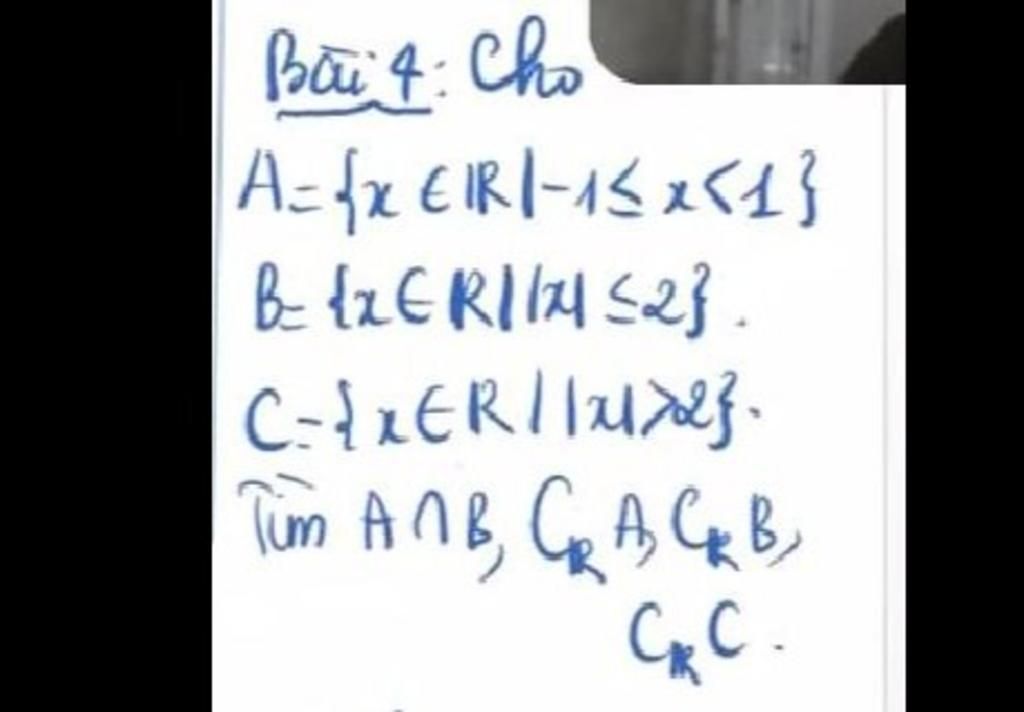 Bài 4: Cho
A={x ∈ ℝ|-1≤ x<1}
B= {x∈ℝ||x| ≤2}.
C={x∈ℝ||x|>2}.
Tìm A∩B, CℝA, CℝB,
CℝC.